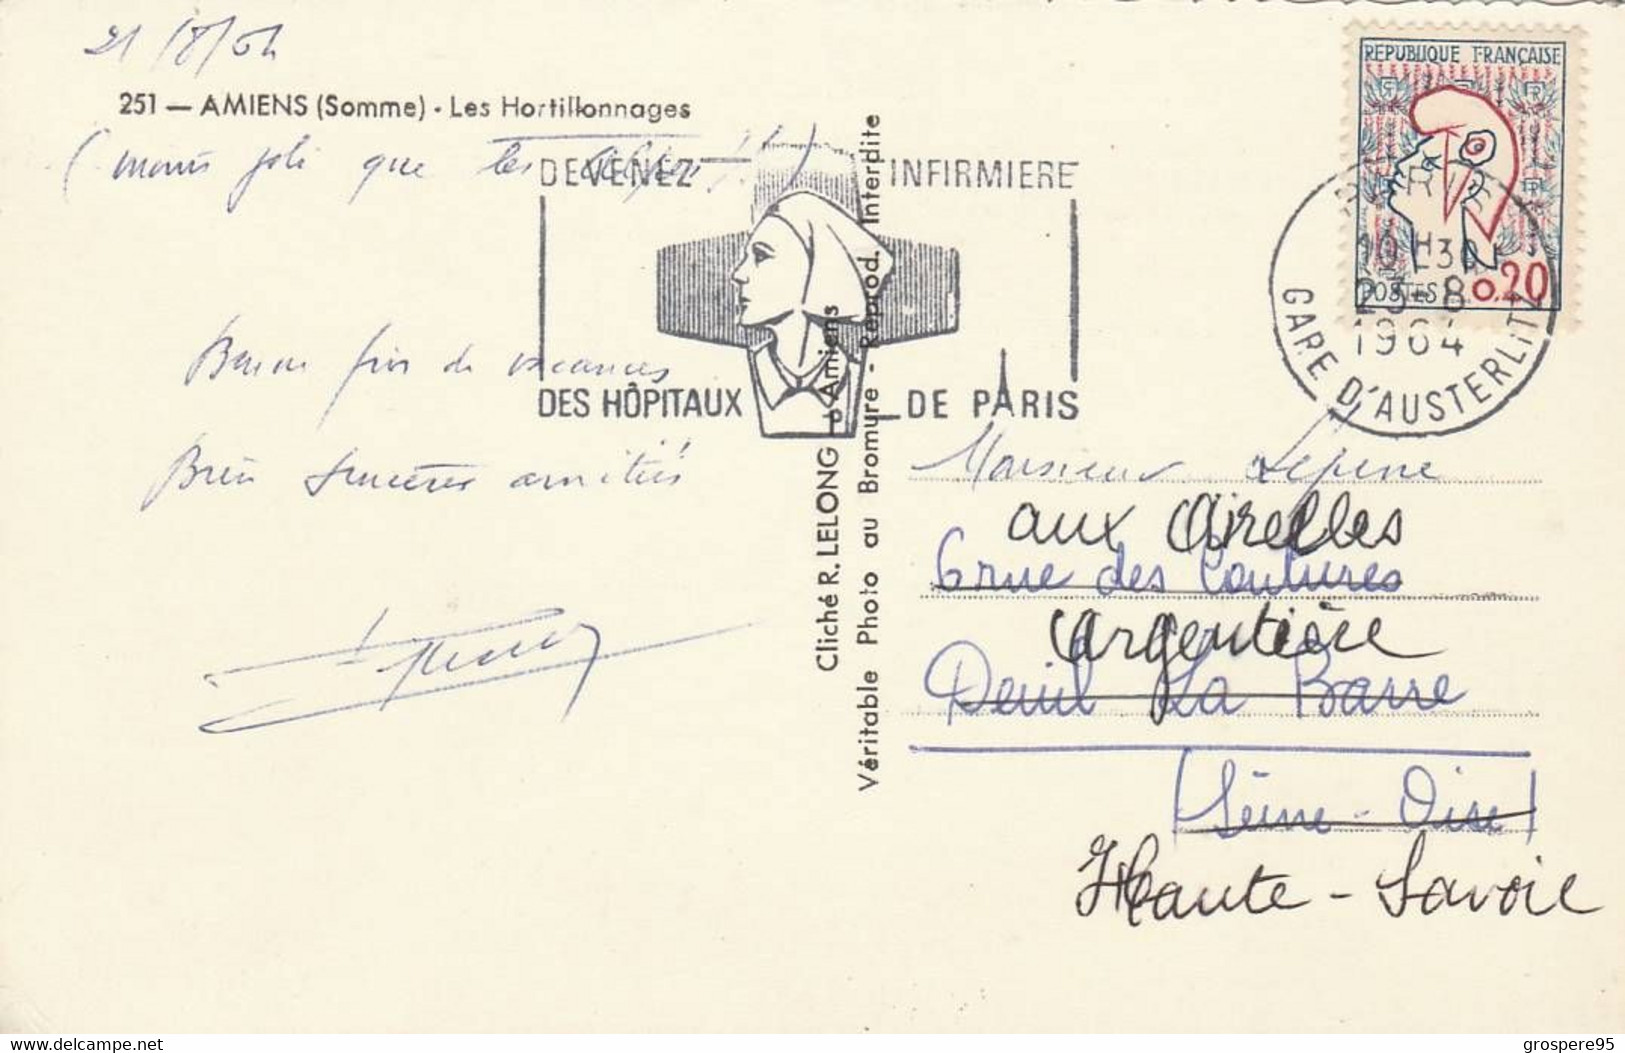 21/8/64
251 — AMIENS (Somme) - Les Hortillonnages
(moins joli que les Alpes !!)
DEVENEZ INFIRMIERE
DES HÔPITAUX DE PARIS
Bonne fin de vacances
Bien sincères amitiés
Cliché R. LELONG - Amiens
Véritable Photo au Bromure - Reprod. Interdite
REPUBLIQUE FRANÇAISE
POSTES 0.20
PARIS
10H30
23-8
1964
GARE D'AUSTERLITZ
Monsieur Leperre
aux Airelles
6 rue des Coutures
Argentière
Deuil La Barre
(Seine-Oise)
Haute-Savoie
delcampe.net
grospere95